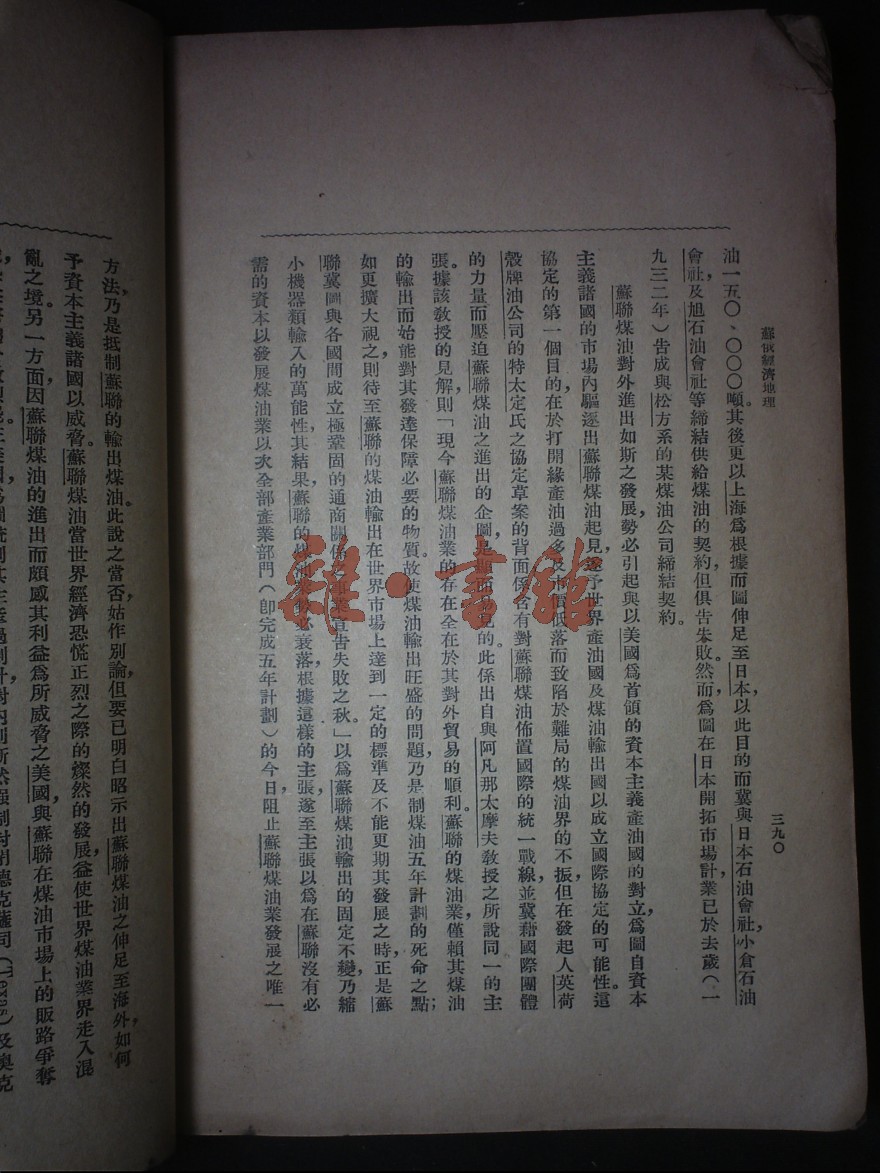 蘇俄經濟地理
三九〇
油一五〇、〇〇〇噸。其後更以上海爲根據而圖伸足至日本,以此目的而冀與日本石油會社,小倉石油
會社,及旭石油會社等締結供給煤油的契約,但俱告失敗。然而,爲圖在日本開拓市場計,業已於去歲(一
九三二年)告成與松方系的某煤油公司締結契約。
蘇聯煤油對外進出如斯之發展,勢必引起與以美國爲首領的資本主義產油國的對立,爲圖自資本
主義諸國的市場內驅逐出蘇聯煤油起見,遂予世界產油國及煤油輸出國以成立國際協定的可能性。這
協定的第一個目的,在於打開緣產油過多及市價低落而致陷於難局的煤油界的不振,但在發起人英荷
殼牌油公司的特太定氏之協定草案的背面係含有對蘇聯煤油佈置國際的統一戰線,並冀藉國際團體
的力量而壓迫蘇聯煤油之進出的企圖,是顯而易見的。此係出自與阿凡那太摩夫敎授之所說同一的主
張。據該敎授的見解,則「現今蘇聯煤油業的存在全在於其對外貿易的順利。蘇聯的煤油業,僅賴其煤油
的輸出而始能對其發達保障必要的物質。故使煤油輸出旺盛的問題,乃是制煤油五年計劃的死命之點;
如更擴大視之,則待至蘇聯的煤油輸出在世界市場上達到一定的標準及不能更期其發展之時,正是蘇
聯冀圖與各國間成立極鞏固的通商關係之事業宣告失敗之秋。」以爲蘇聯煤油輸出的固定不變,乃縮
小機器類輸入的萬能性,其結果,蘇聯的煤油業勢必衰落,根據這樣的主張,遂至主張以爲在蘇聯沒有必
需的資本以發展煤油業以次全部產業部門(卽完成五年計劃)的今日,阻止蘇聯煤油業發展之唯一
方法,乃是抵制蘇聯的輸出煤油。此說之當否,姑作別論,但要已明白昭示出蘇聯煤油之伸足至海外,如何
予資本主義諸國以威脅。蘇聯煤油當世界經濟恐慌正烈之際的燦然的發展,益使世界煤油業界走入混
亂之境。另一方面,因蘇聯煤油的進出而頗感其利益爲所威脅之美國,與蘇聯在煤油市場上的販路爭奪
德克薩司(Texas)及奥克
雜·書館